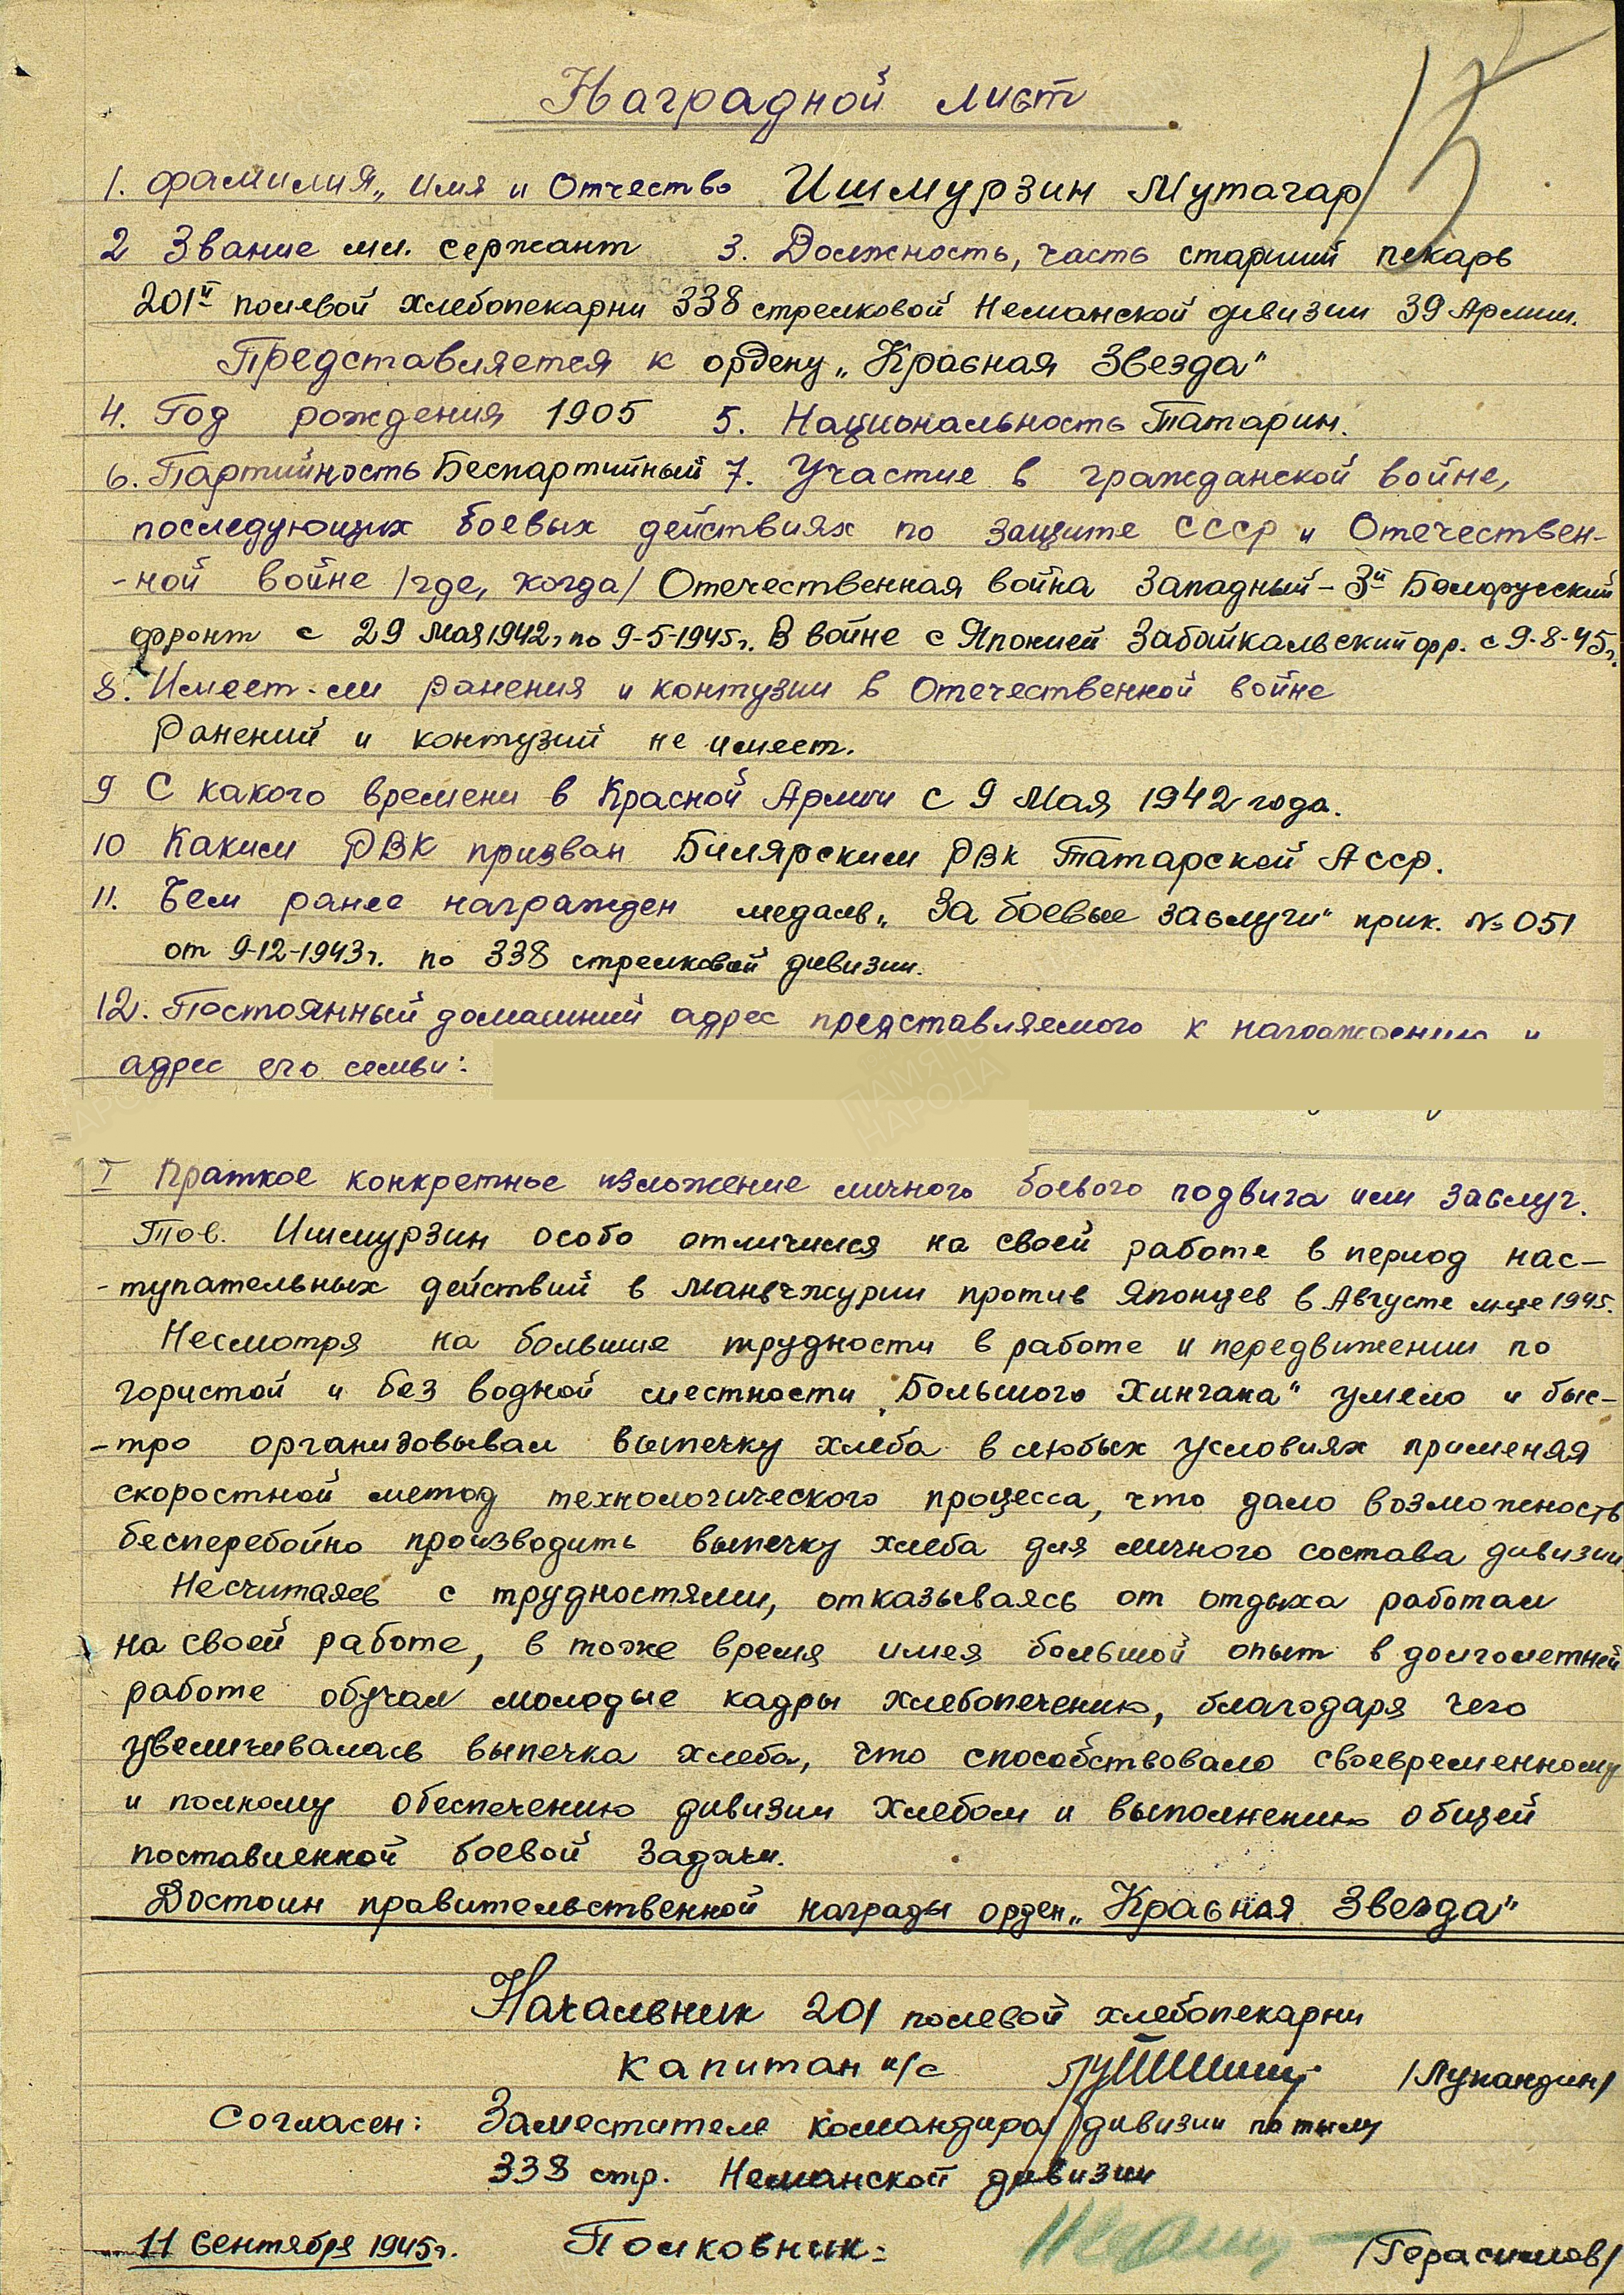 Наградной лист
15
1. Фамилия, Имя и Отчество Ишмурзин Мутагар
2 Звание мл. сержант 3. Должность, часть старший пекарь
201й полевой хлебопекарни 338 стрелковой Неманской дивизии 39 Армии.
Представляется к ордену „Красная Звезда"
4. Год рождения 1905 5. Национальность Татарин.
6. Партийность Беспартийный 7. Участие в гражданской войне,
последующих боевых действиях по защите СССР и Отечествен-
-ной войне /где, когда/ Отечественная война Западный - 3й Белорусский
фронт с 29 Мая 1942г по 9-5-1945г. В войне с Японией Забайкальский фр. с 9-8-45г.
8. Имеет-ли ранения и контузии в Отечественной войне
Ранений и контузий не имеет.
9 С какого времени в Красной Армии с 9 Мая 1942 года.
10 Каким РВК призван Билярским РВК Татарской АССР.
11. Чем ранее награжден медаль „За боевые заслуги" прик. № 051
от 9-12-1943г. по 338 стрелковой дивизии.
12. Постоянный домашний адрес представляемого к награждению и
адрес его семьи:
ПАМЯТЬ
НАРОДА
I Краткое конкретное изложение личного боевого подвига или заслуг.
Тов. Ишмурзин особо отличился на своей работе в период нас-
-тупательных действий в Маньчжурии против Японцев в Августе м-це 1945.
Несмотря на большие трудности в работе и передвижении по
гористой и без водной местности „Большого Хингана" умело и быс-
-тро организовывал выпечку хлеба в любых условиях применяя
скоростной метод технологического процесса, что дало возможность
бесперебойно производить выпечку хлеба для личного состава дивизии.
Несчитаясь с трудностями, отказываясь от отдыха работал
на своей работе, в тоже время имея большой опыт в долголетней
работе обучал молодые кадры хлебопечению, благодаря чего
увеличивалась выпечка хлеба, что способствовало своевременному
и полному обеспечению дивизии хлебом и выполнению общей
поставленной боевой задачи.
Достоин правительственной награды орден „Красная Звезда"
Начальник 201 полевой хлебопекарни
капитан и/с /Лупандин/
Согласен: Заместитель командира дивизии по тылу
338 стр. Неманской дивизии
11 сентября 1945г. Полковник: /Герасимов/